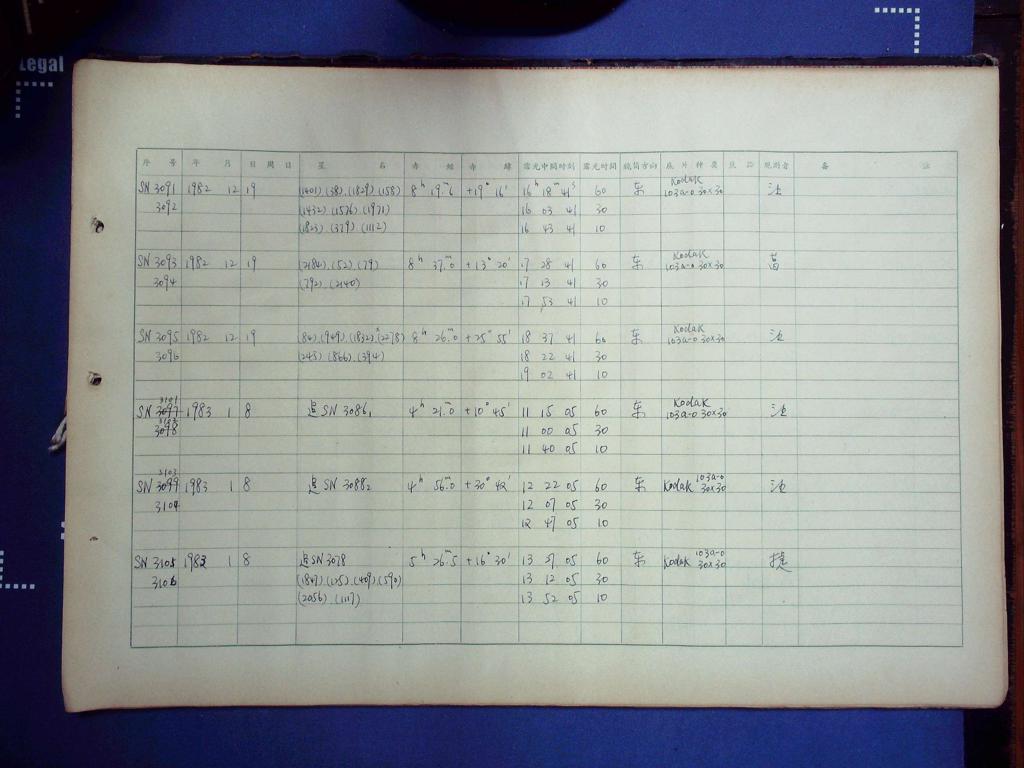 Legal
序 号 年 月 日 周 日 星 名 赤 經 赤 緯 露光中間时刻 露光时間 鏡筒方向 底 片 种 类 观測者 备 註
SN 3091 1982 12 19 (1401).(38).(1829).(158) 8h 19m.6 +19° 16' 16h 18m 41s 60 东 Kodak 103a-O 30×30
3092 (1432).(1576).(1971) 16 03 41 30
(1823).(379).(1112) 16 43 41 10
SN 3093 1982 12 19 (2184).(52).(79) 8h 37m.0 +13° 20' 17 28 41 60 东 Kodak 103a-O 30×30
3094 (792).(2140) 17 13 41 30
17 53 41 10
SN 3095 1982 12 19 (84).(949).(1832).(2278) 8h 26m.0 +25° 55' 18 37 41 60 东 Kodak 103a-O 30×30
3096 (245).(866).(394) 18 22 41 30
19 02 41 10
3101
SN 3097 1983 1 8 追 SN 3086, 4h 21m.0 +10° 45' 11 15 05 60 东 Kodak 103a-O 30×30
3102
3098 11 00 05 30
11 40 05 10
3103
SN 3099 1983 1 8 追 SN 3088₂ 4h 56m.0 +30° 42' 12 22 05 60 东 Kodak 103a-O 30×30
3104 12 07 05 30
12 47 05 10
SN 3105 1983 1 8 追 SN 3078 5h 26m.5 +16° 30' 13 27 05 60 东 Kodak 103a-O 30×30 捷
3106 (1847).(125).(409).(590) 13 12 05 30
(2056).(1117) 13 52 05 10